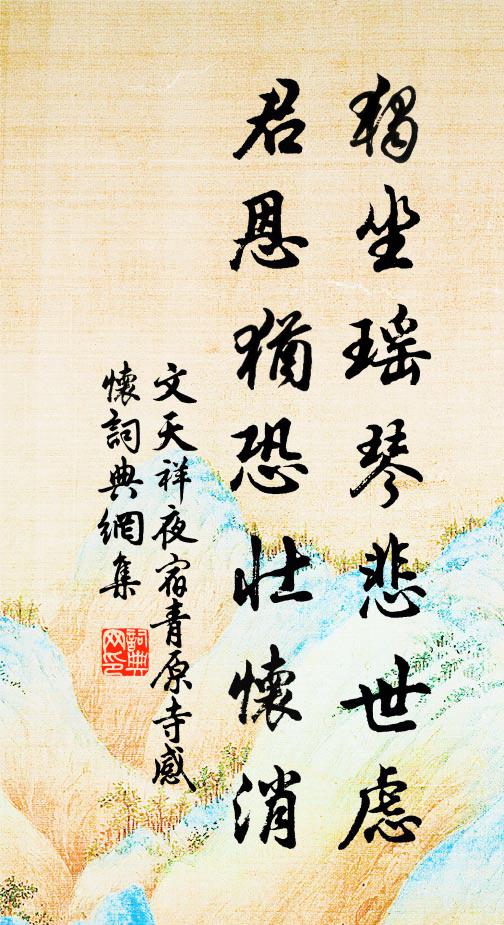 獨坐瑶琴悲世慮
君恩猶恐壮懷消
文天祥夜宿青原寺感
懷詞典網集
詞典
网印